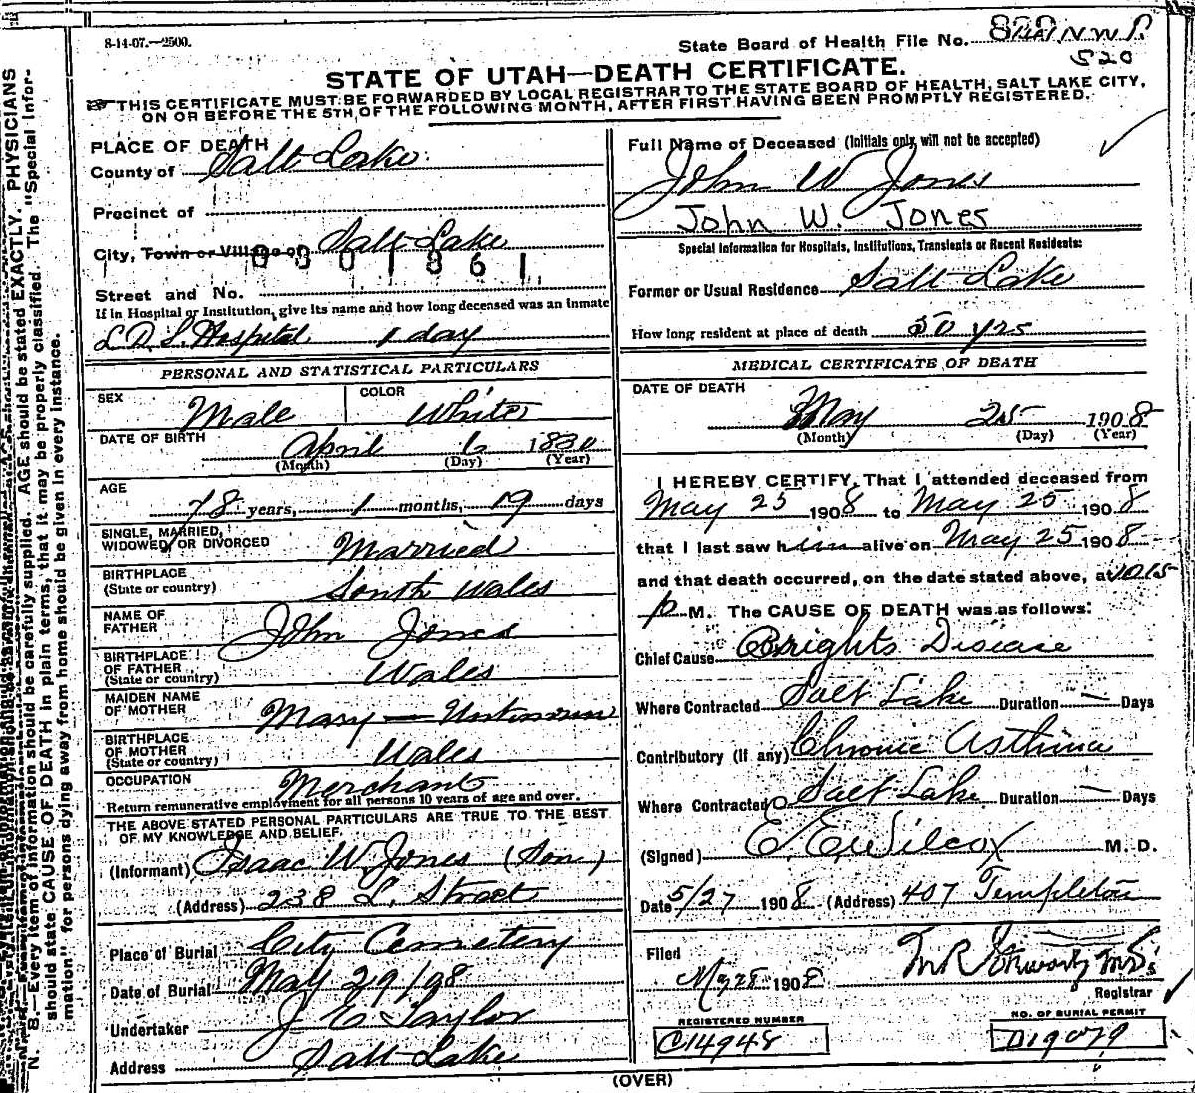 8-14-07.—2500.
State Board of Health File No.
520
STATE OF UTAH—DEATH CERTIFICATE.
THIS CERTIFICATE MUST BE FORWARDED BY LOCAL REGISTRAR TO THE STATE BOARD OF HEALTH, SALT LAKE CITY,
ON OR BEFORE THE 5TH OF THE FOLLOWING MONTH, AFTER FIRST HAVING BEEN PROMPTLY REGISTERED.
PLACE OF DEATH
County of Salt Lake.
Precinct of
City, Town or Village of Salt Lake
0301861
Street and No.
If in Hospital or Institution, give its name and how long deceased was an inmate
L. D. S. Hospital 1 day
PERSONAL AND STATISTICAL PARTICULARS
SEX Male COLOR White
DATE OF BIRTH April 6 1830
(Month) (Day) (Year)
AGE
78 years, 1 months, 19 days
SINGLE, MARRIED,
WIDOWED, OR DIVORCED Married
BIRTHPLACE
(State or country) South Wales
NAME OF
FATHER John Jones
BIRTHPLACE
OF FATHER
(State or country) Wales
MAIDEN NAME
OF MOTHER Mary —
BIRTHPLACE
OF MOTHER
(State or country) Wales
OCCUPATION Merchant
Return remunerative employment for all persons 10 years of age and over.
THE ABOVE STATED PERSONAL PARTICULARS ARE TRUE TO THE BEST
OF MY KNOWLEDGE AND BELIEF.
(Informant) Isaac W. Jones (Son)
(Address) 238 L. Street
Place of Burial City Cemetery
Date of Burial May 29/08
Undertaker J E Taylor
Address Salt Lake
Full Name of Deceased (Initials only will not be accepted)
John W Jones
John W. Jones
Special Information for Hospitals, Institutions, Transients or Recent Residents:
Former or Usual Residence Salt Lake
How long resident at place of death 50 yrs
MEDICAL CERTIFICATE OF DEATH
DATE OF DEATH
May 25 1908
(Month) (Day) (Year)
I HEREBY CERTIFY, That I attended deceased from
May 25 1908 to May 25 1908
that I last saw him alive on May 25 1908
and that death occurred, on the date stated above, at 10 15
p M. The CAUSE OF DEATH was as follows:
Chief Cause Brights Disease
Where Contracted Salt Lake Duration — Days
Contributory (if any) Chronic Asthma
Where Contracted Salt Lake Duration — Days
(Signed) E. E. Wilcox M. D.
Date 5/27 1908 (Address) 407 Templeton
Filed
My 28 1908
Registrar
REGISTERED NUMBER
C14948
NO. OF BURIAL PERMIT
D19079
(OVER)
N. B.—Every item of information should be carefully supplied. AGE should be stated EXACTLY. PHYSICIANS
should state CAUSE OF DEATH in plain terms, that it may be properly classified. The "Special Infor-
mation" for persons dying away from home should be given in every instance.